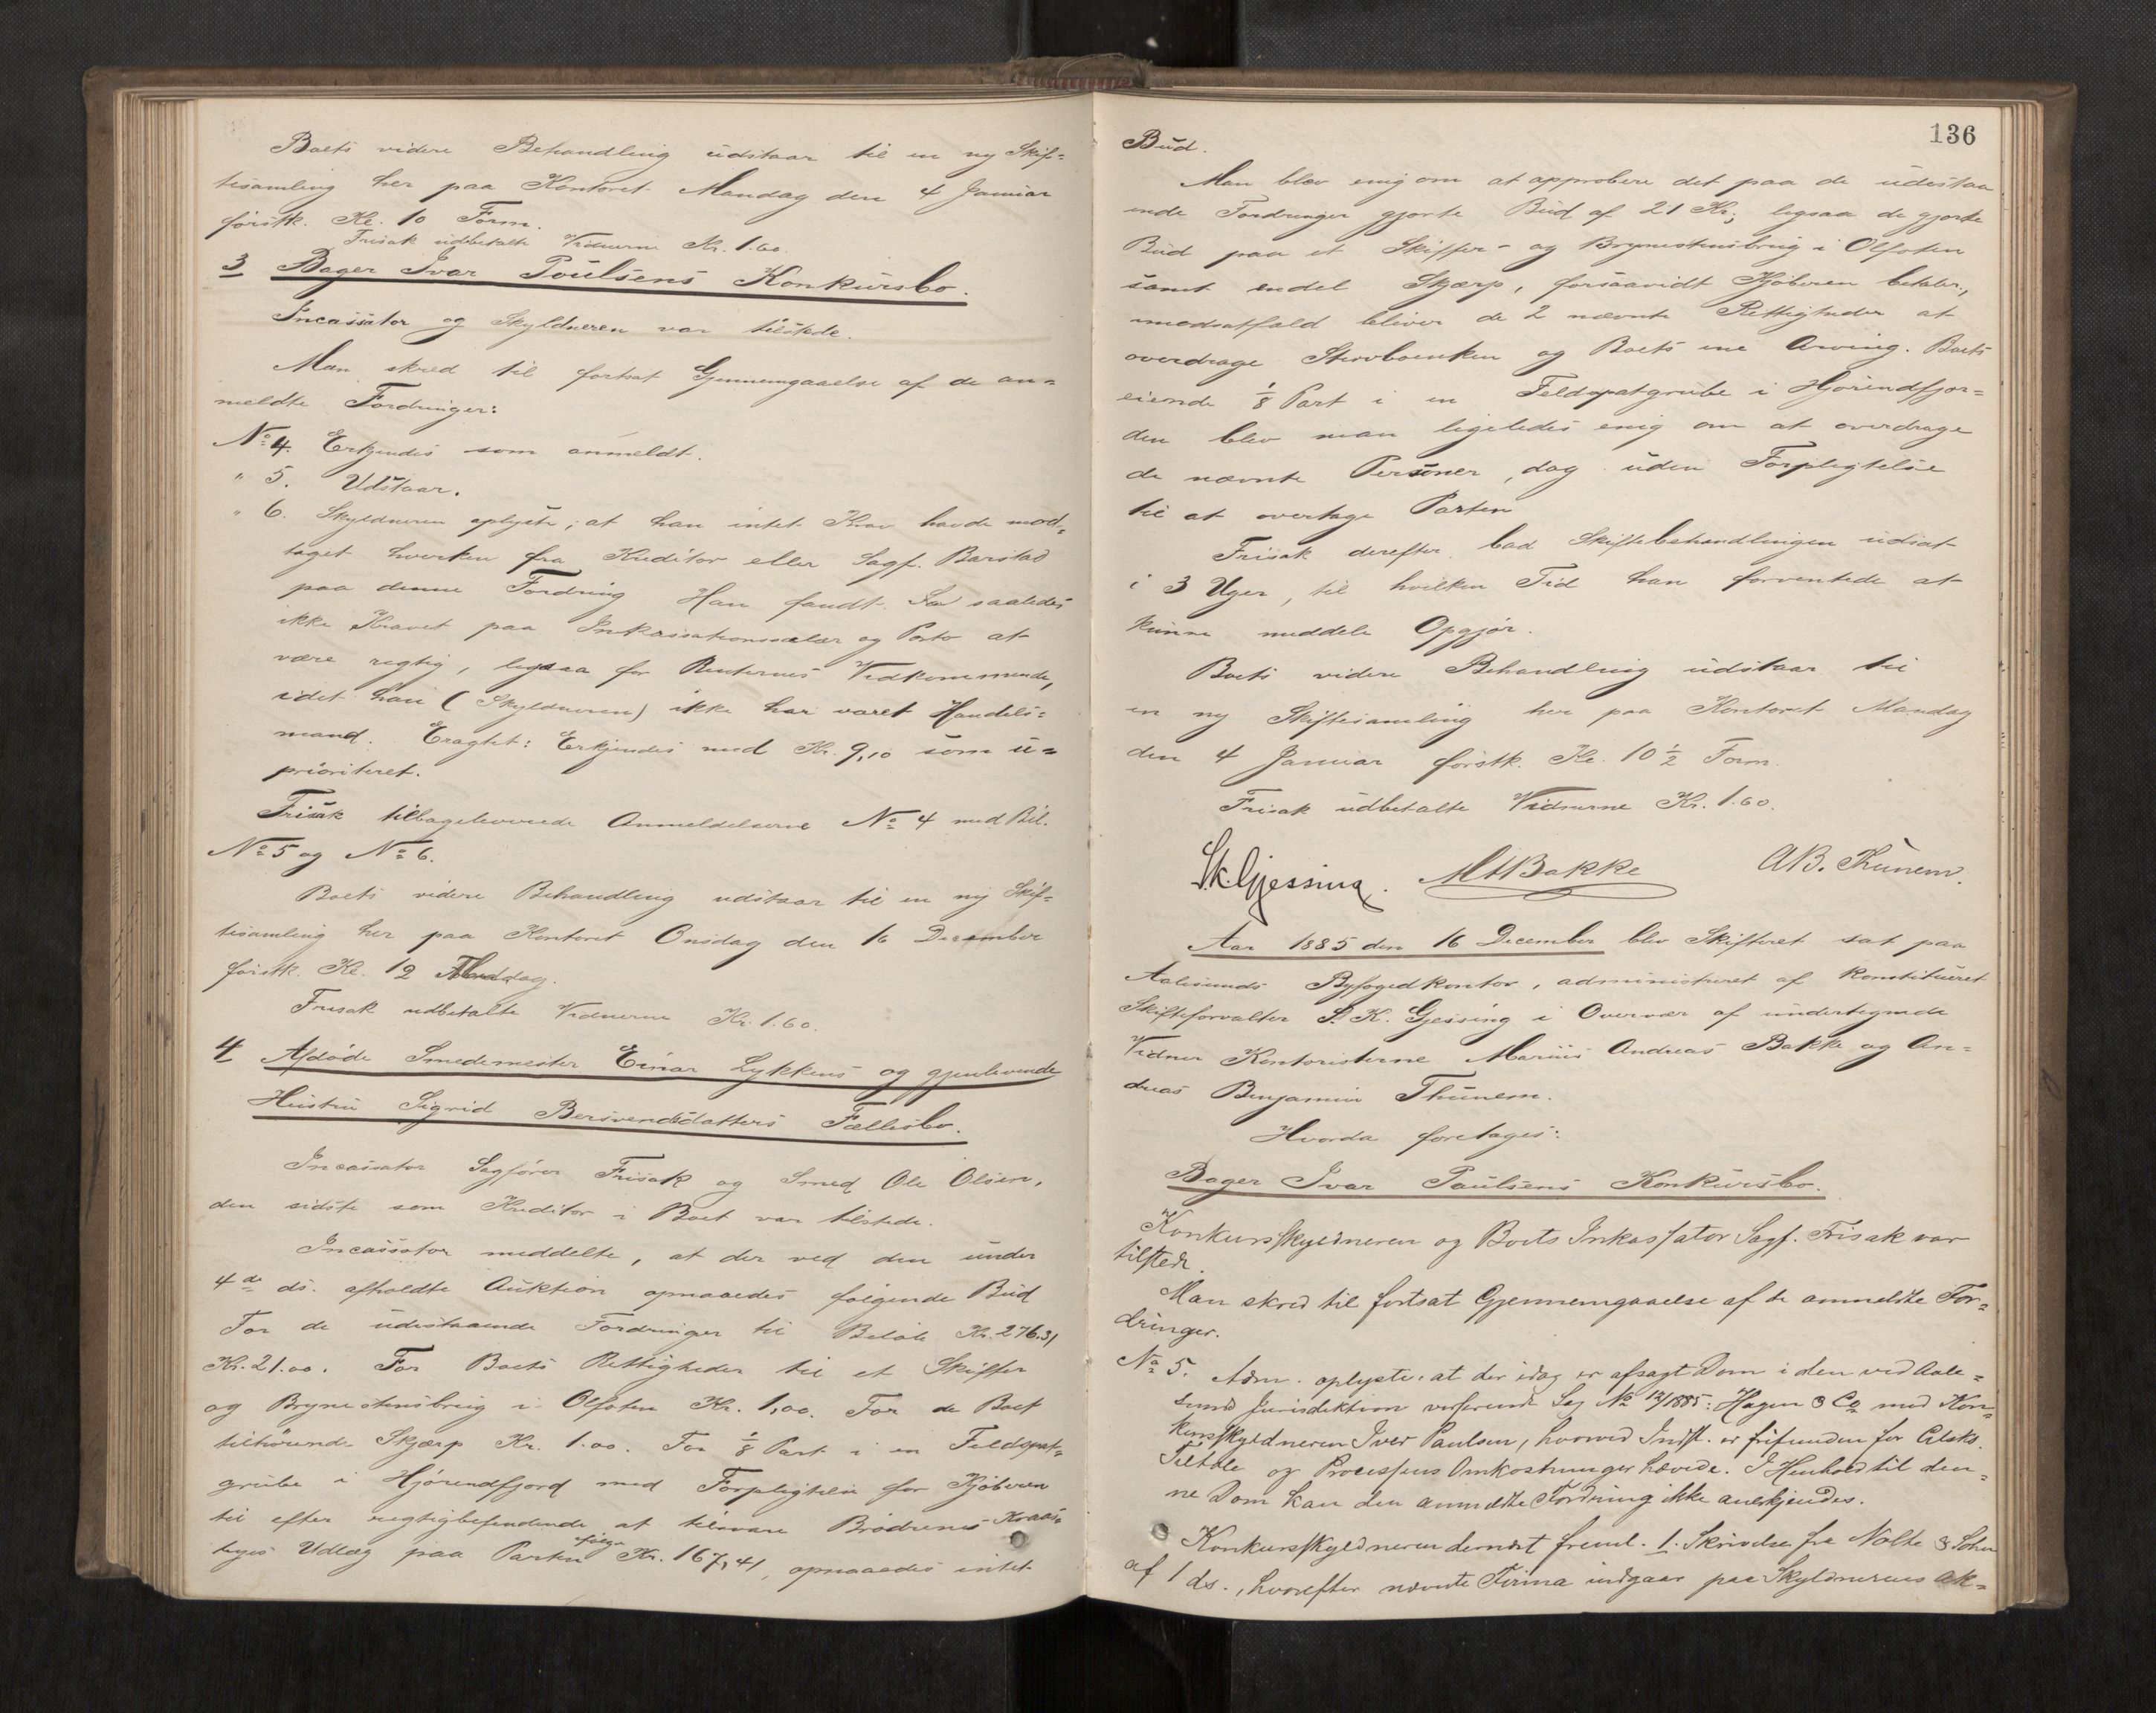 Boets videre Behandling udstaar til en ny Skif=
tesamling her paa Kontoret Mandag den 4 Januar
førstk. Kl. 10 Form.
Frisak udbetalte Vidnerne Kr. 1.60.
3 Bager Ivar Poulsens Konkursbo.
Incassator og Skyldneren var tilstede.
Man skred til fortsat Gjennemgaaelse af de an=
meldte Fordringer:
No 4. Erkjendes som anmeldt.
" 5. Udstaar.
" 6. Skyldneren oplyste, at han intet Krav havde mod=
taget hverken fra Kreditor eller Sagf. Barstad
paa denne Fordring Han fandt saaledes
ikke Kravet paa Inkassationssalær og Porto at
være rigtig, ligesaa for Renternes Vedkommende,
idet han (Skyldneren) ikke har været Handels=
mand. Eragtet: Erkjendes med Kr. 9,10 som u=
prioriteret.
Frisak tilbageleverede Anmeldelserne No 4 med Bil.
No 5 og No 6.
Boets videre Behandling udstaar til en ny Skif=
tesamling her paa Kontoret Onsdag den 16 December
førstk. Kl. 12 Middag.
Frisak udbetalte Vidnerne Kr. 1.60.
4 Afdøde Smedemester Einar Lykkens og gjenlevende
Hustru Sigrid Bersvendsdatters Fællesbo.
Incassator Sagfører Frisak og Smed Ole Olsen,
den sidste som Kreditor i Boet var tilstede.
Incassator meddelte, at der ved den under
4de ds. afholdte Auktion opnaaedes følgende Bud
For de udestaaende Fordringer til Beløb Kr. 276.31
Kr. 21.00. For Boets Rettigheder til et Skiffer
og Brynestensbrug i Olfoten Kr. 1,00. For de Boet
tilhørende Skjærp Kr. 1.00. For 1/8 Part i en Feldspat=
grube i Hjørendfjord med Forpligtelse for Kjøberen
til efter rigtigbefindende at tilsvare Brødrenes
Udlæg paa Parten ifølge Kr. 167,41, opnaaedes intet
136
Bud.
Man blev enig om at approbere det paa de udestaa
ende Fordringer gjorte Bud af 21 Kr., ligsaa de gjorte
Bud paa et Skiffer- og Brynestensbrug i Olfoten
samt endel Skjærp, forsaavidt Kjøberen betaler,
imodsatfald bliver de 2 nævnte Rettigheder at
overdrage Stervboenken og Boets ene Arving. Boets
eiende 1/8 Part i en Feldspatgrube i Hjørendfjor=
den blev man ligeledes enig om at overdrage
de nævnte Personer, dog uden Forpligtelse
til at overtage Parten
Frisak derefter bad Skiftebehandlingen udsat
i 3 Uger, til hvilken Tid han forventede at
kunne meddele Opgjør.
Boets videre Behandling udstaar til
en ny Skiftesamling her paa Kontoret Mandag
den 4 Januar førstk. Kl. 10 1/2 Form.
Frisak udbetalte Vidnerne Kr. 1.60.
S.K. Gjessing. MABakke AB. Thunem.
Aar 1885 den 16 December blev Skifteret sat paa
Aalesunds Byfogedkontor, administreret af konstitueret
Skifteforvalter S. K. Gjessing i Overvær af undertegnede
Vidner Kontoristerne Marius Andreas Bakke og An=
dreas Benjamin Thunem.
Hvorda foretages:
Bager Ivar Paulsens Konkursbo.
Konkursskyldneren og Boets Inkassator Sagf. Frisak var
tilstede.
Man skred til fortsat Gjennemgaaelse af de anmeldte For=
dringer.
No 5. Adm. oplyste, at der idag er afsagt Dom i den ved Aale=
sunds Jurisdiktion verserende Sag No 12/1885: Hagen & Co med Kon=
kursskyldneren Iver Paulsen, hvorved Indst. er frifunden for Citsks.
Tiltale og Processens Omkostninger hævede. I Henhold til den=
ne Dom kan den anmeldte Fordring ikke anerkjendes.
Konkursskyldneren dernæst freml. 1. Skrivelse fra Nolte & Sohn
af 1 ds., hvorefter nævnte Firma indgaar paa Skyldnerens ak=